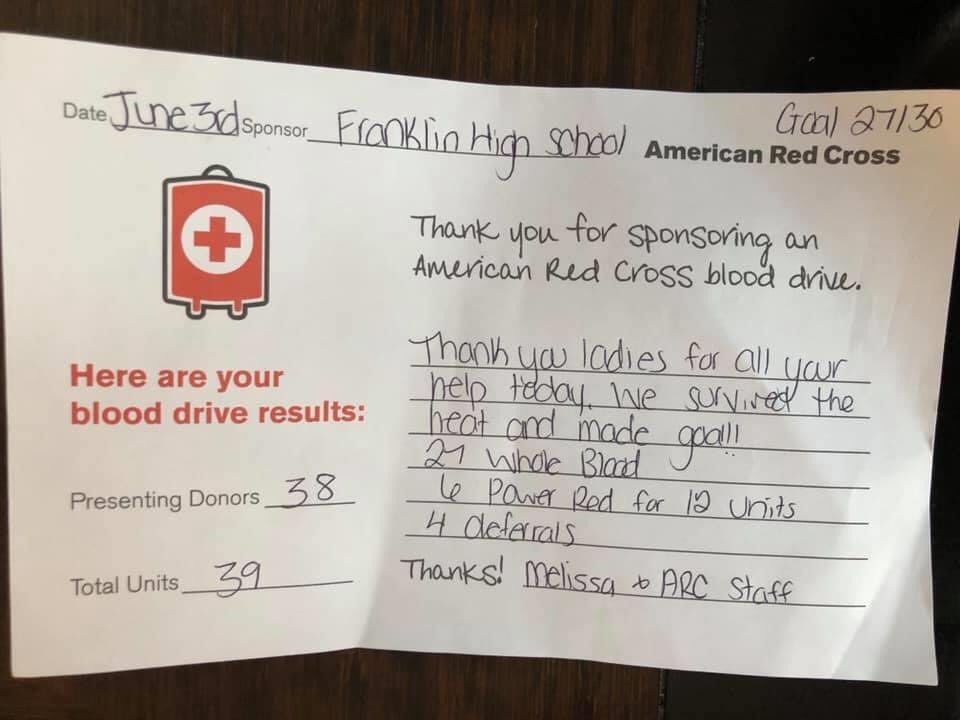 Date June 3rd Sponsor Franklin High School
Goal 27/30
American Red Cross
Thank you for sponsoring an
American Red Cross blood drive.
Here are your
blood drive results:
Presenting Donors 38
Total Units 39
Thank you ladies for all your
help today. We survived the
heat and made goal!!
27 Whole Blood
6 Power Red for 12 units
4 deferrals
Thanks! Melissa & ARC Staff